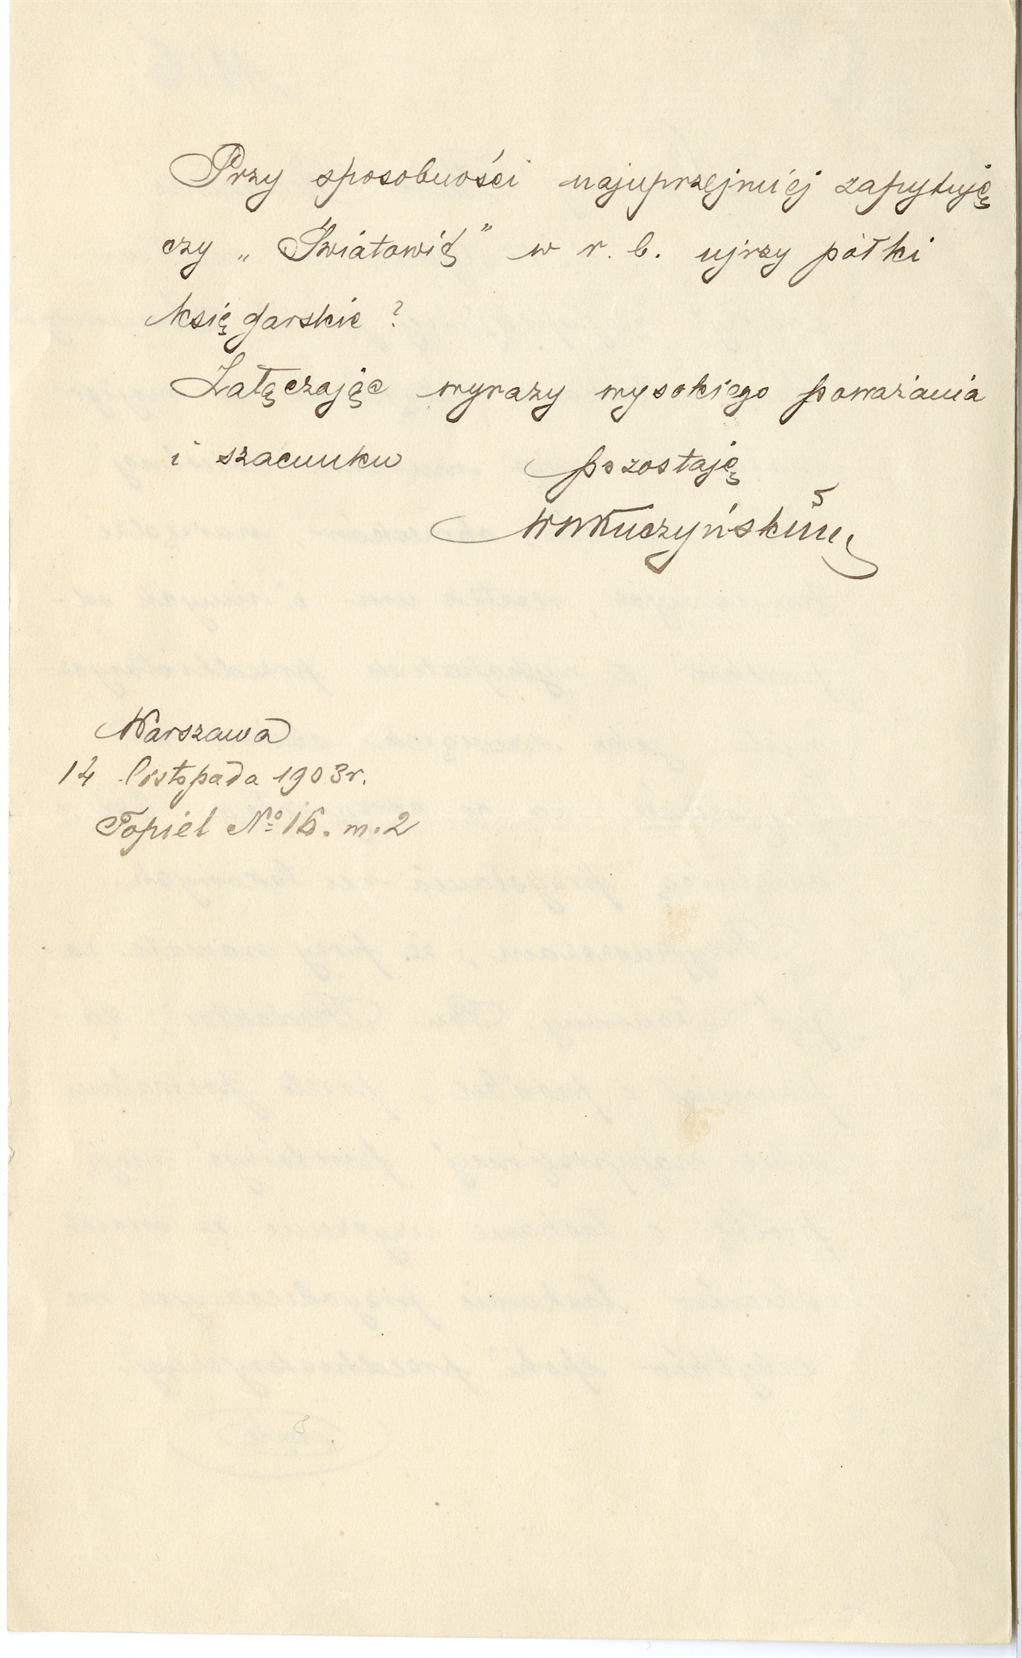 Przy sposobności najuprzejmiej zapytuję
czy „Światowid" w r. b. ujrzy półki
księgarskie?
Załączając wyrazy wysokiego poważania
i szacunku pozostaję
Warszawa
14 listopada 1903 r.
Topiel № 16. m. 2